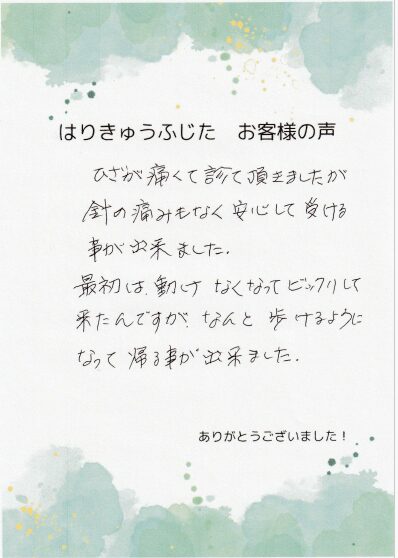 はりきゅうふじた　お客様の声
ひざが痛くて診て頂きましたが
針の痛みもなく安心して受ける
事が出来ました。
最初は、動けなくなってビックリして
来たんですが、なんと歩けるように
なって帰る事が出来ました。
ありがとうございました！